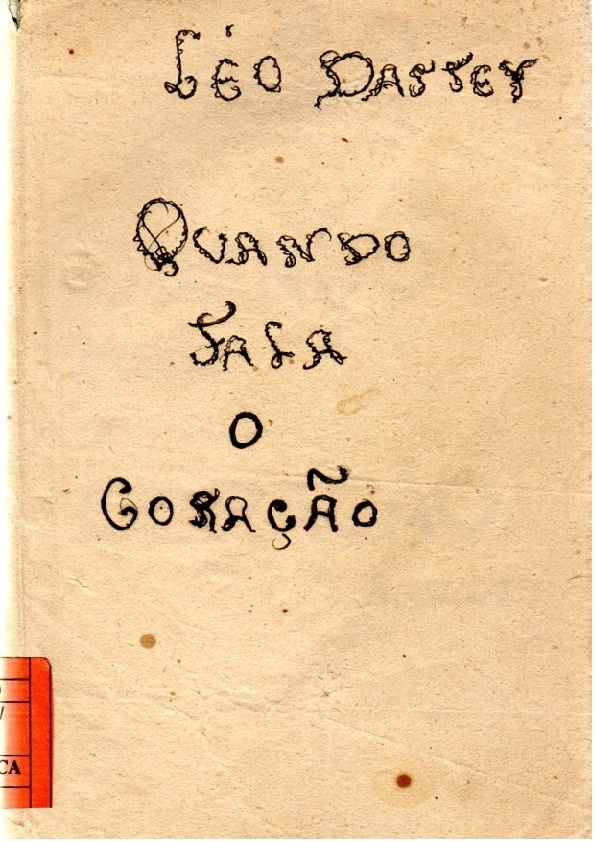 Léo Dartey
Quando
Fala
o
Coração
CA